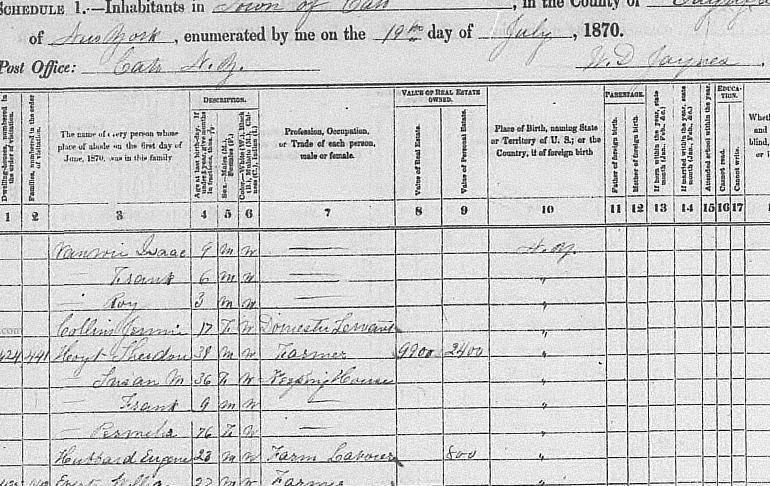 SCHEDULE 1.—Inhabitants in Town of Cato, in the County of
of New York, enumerated by me on the 19th day of July, 1870.
Post Office: Cato N.Y. W. D. Jaynes.
Dwelling-houses, numbered in the order of visitation.
Families, numbered in the order of visitation.
The name of every person whose place of abode on the first day of June, 1870, was in this family
DESCRIPTION.
Age at last birth-day. If under 1 year, give months in fractions, thus,
Sex.—Males (M.), Females (F.)
Color.—White (W.), Black (B.), Mulatto (M.), Chinese (C.), Indian (I.)
Profession, Occupation, or Trade of each person, male or female.
VALUE OF REAL ESTATE OWNED.
Value of Real Estate.
Value of Personal Estate.
Place of Birth, naming State or Territory of U. S.; or the Country, if of foreign birth
PARENTAGE.
Father of foreign birth.
Mother of foreign birth.
If born within the year, state month (Jan., Feb., &c.)
If married within the year, state month (Jan., Feb., &c.)
Attended school within the year.
EDUCATION.
Cannot read.
Cannot write.
Wheth
and
blind,
or i
1 2 3 4 5 6 7 8 9 10 11 12 13 14 15 16 17
Vanwie Isaac 9 M W — N.Y.
— Frank 6 M W — "
— Roy 3 M W — "
Collins Jennie 17 F W Domestic Servant "
424 441 Hoyt Sheldon 38 M W Farmer 9900 2400 "
— Susan M 36 F W Keeping House "
— Frank 9 M W — "
— Permelia 76 F W — "
Hubbard Eugene 23 M W Farm Laborer 800 "
27 M W Farmer